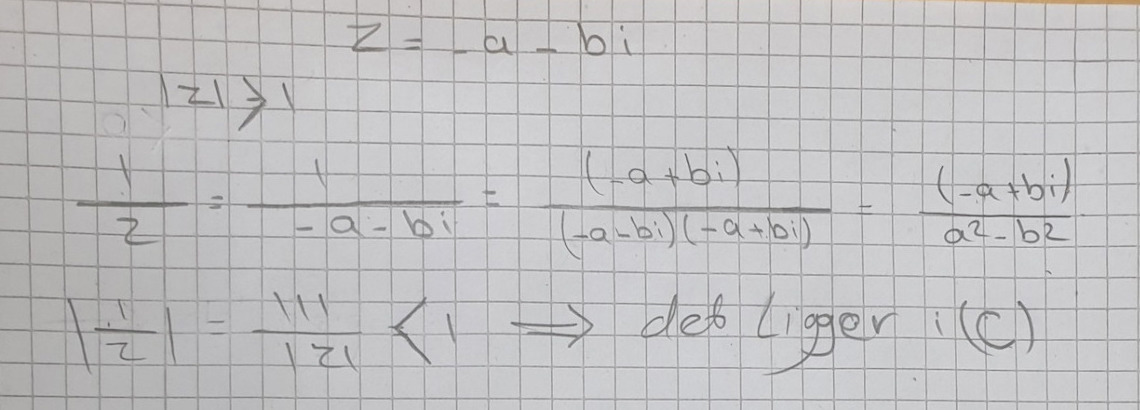 z = -a - bi
|z| > 1
1/z = 1/(-a - bi) = (-a + bi)/((-a - bi)(-a + bi)) = (-a + bi)/(a² - b²)
|1/z| = |1|/|z| < 1 ⟹ det ligger i (C)